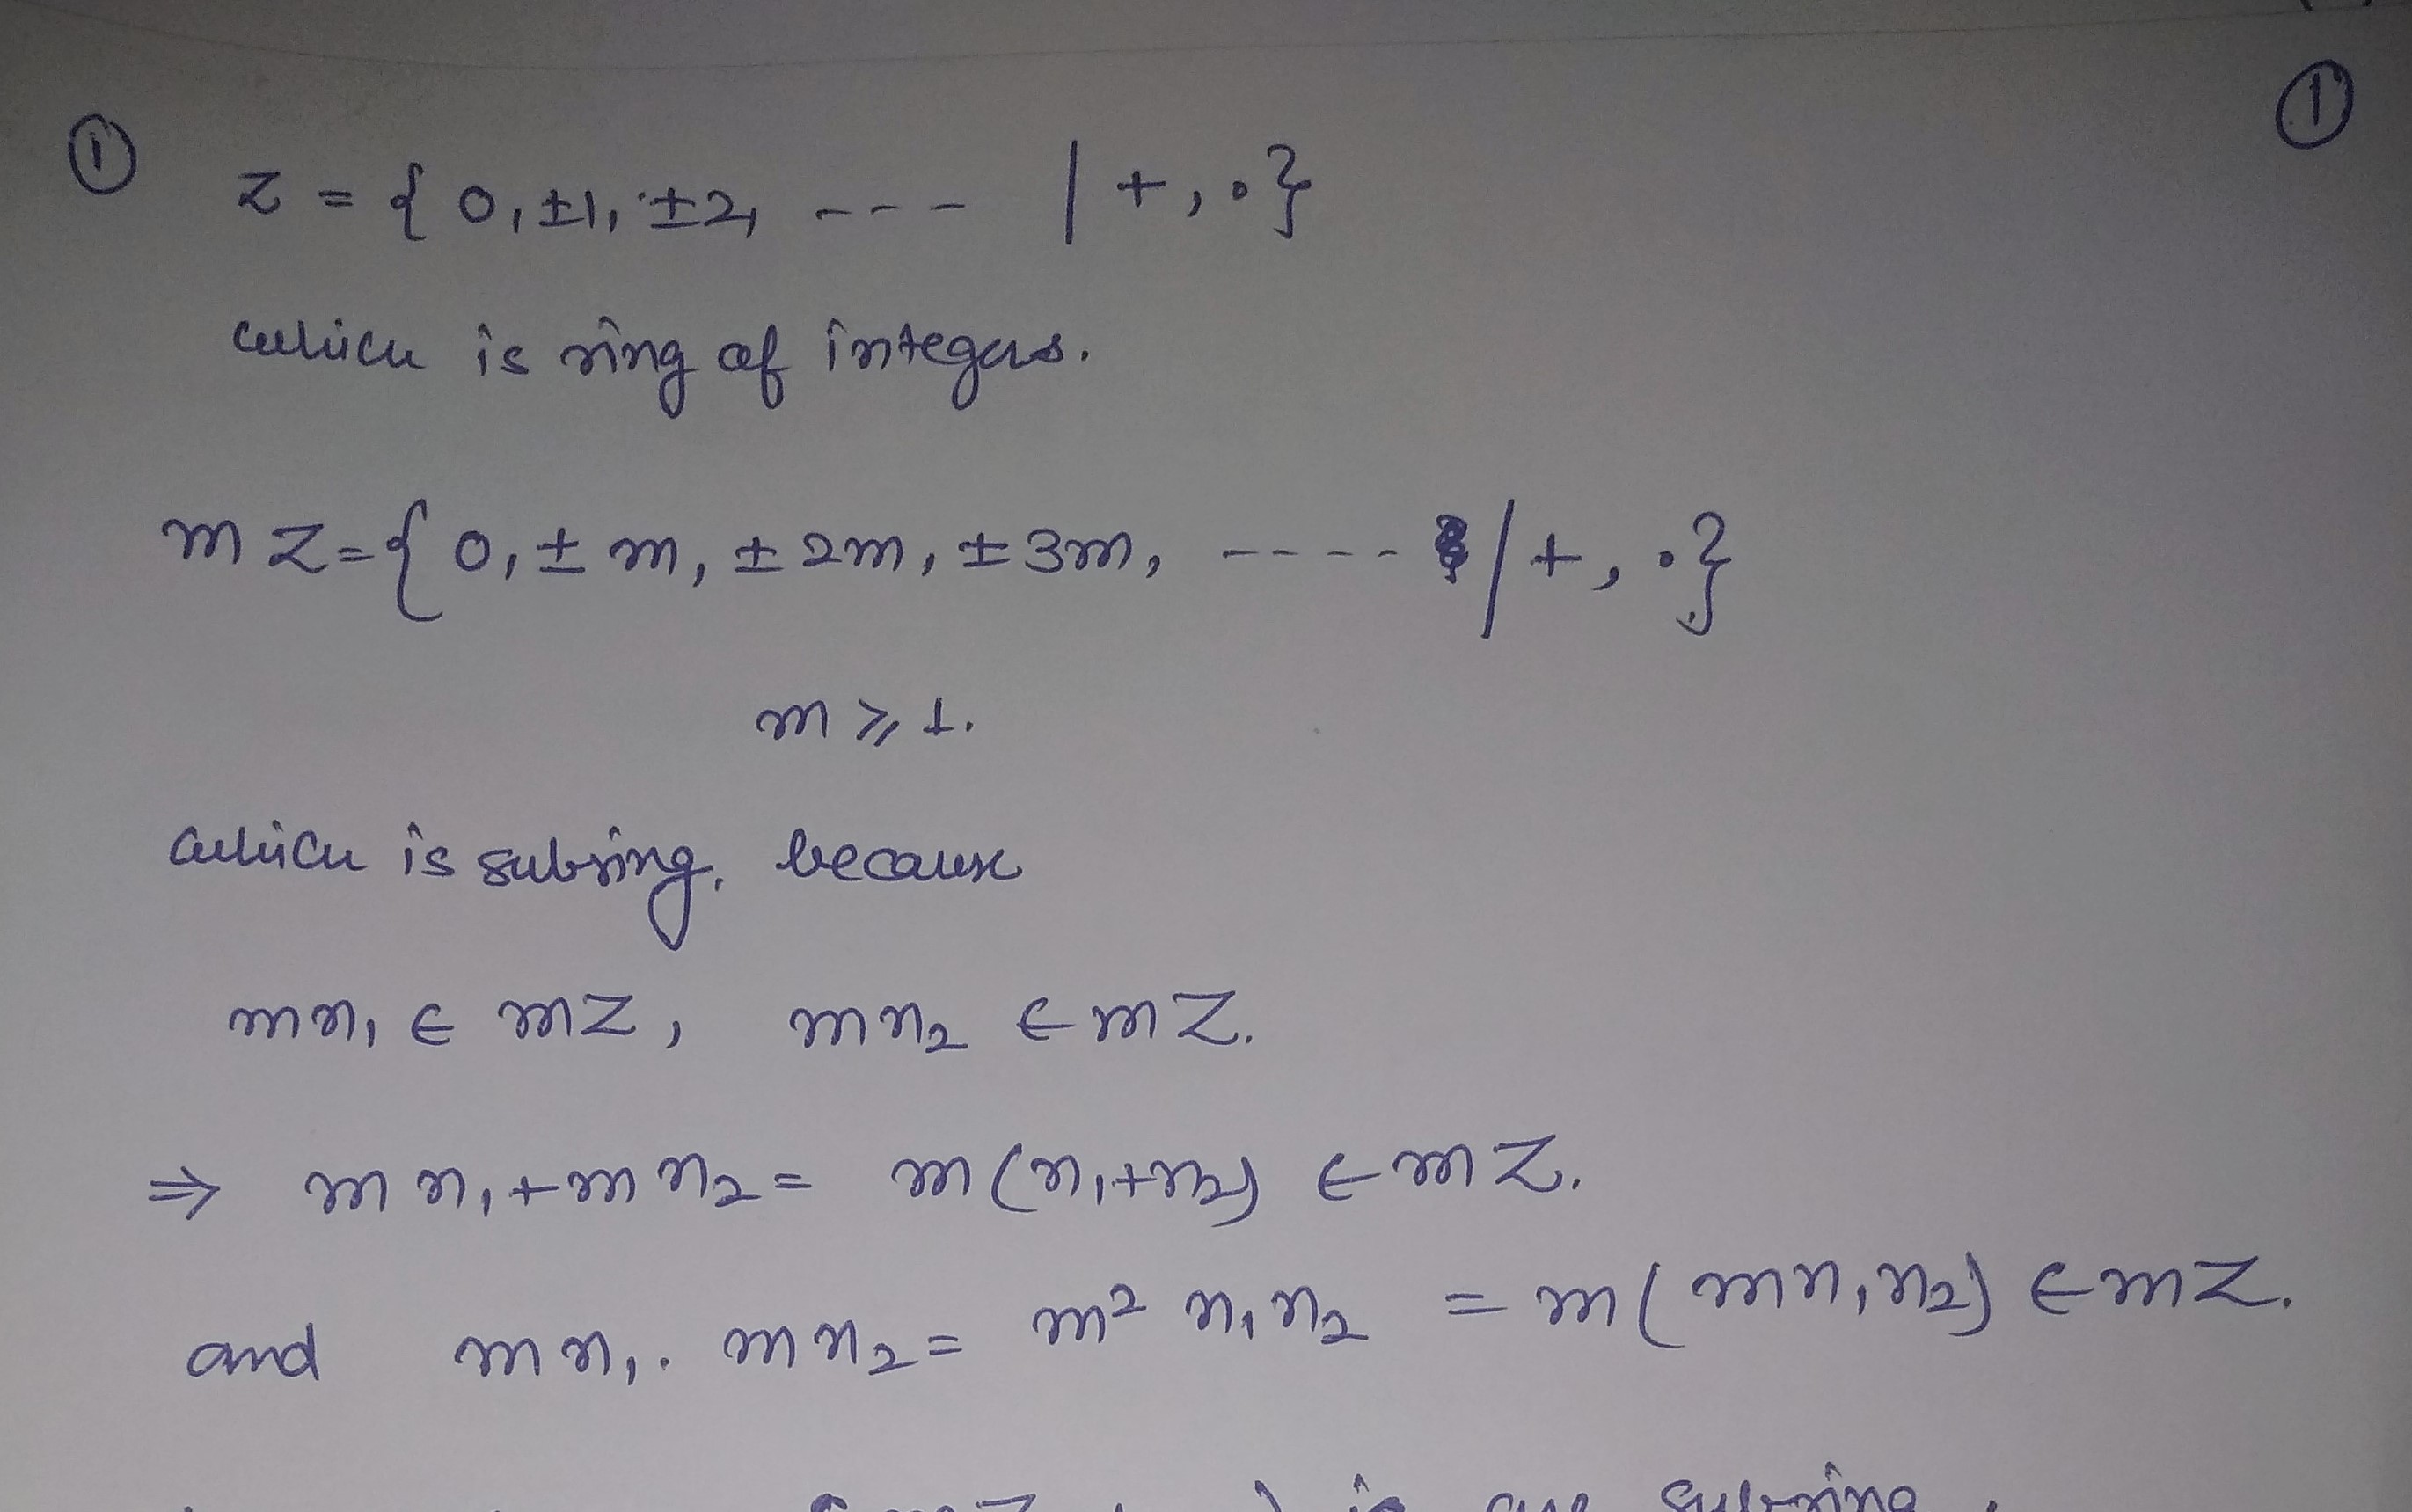 ① ①
Z = { 0, ±1, ±2, --- | +, . }
which is ring of integers.
mZ = { 0, ± m, ± 2m, ± 3m, ---- / +, . }
m ⩾ 1.
which is subring, because
mn₁ ∈ mZ, mn₂ ∈ mZ.
⇒ mn₁ + mn₂ = m(n₁+n₂) ∈ mZ.
and mn₁ . mn₂ = m² n₁n₂ = m(mn₁n₂) ∈ mZ.
is subring.